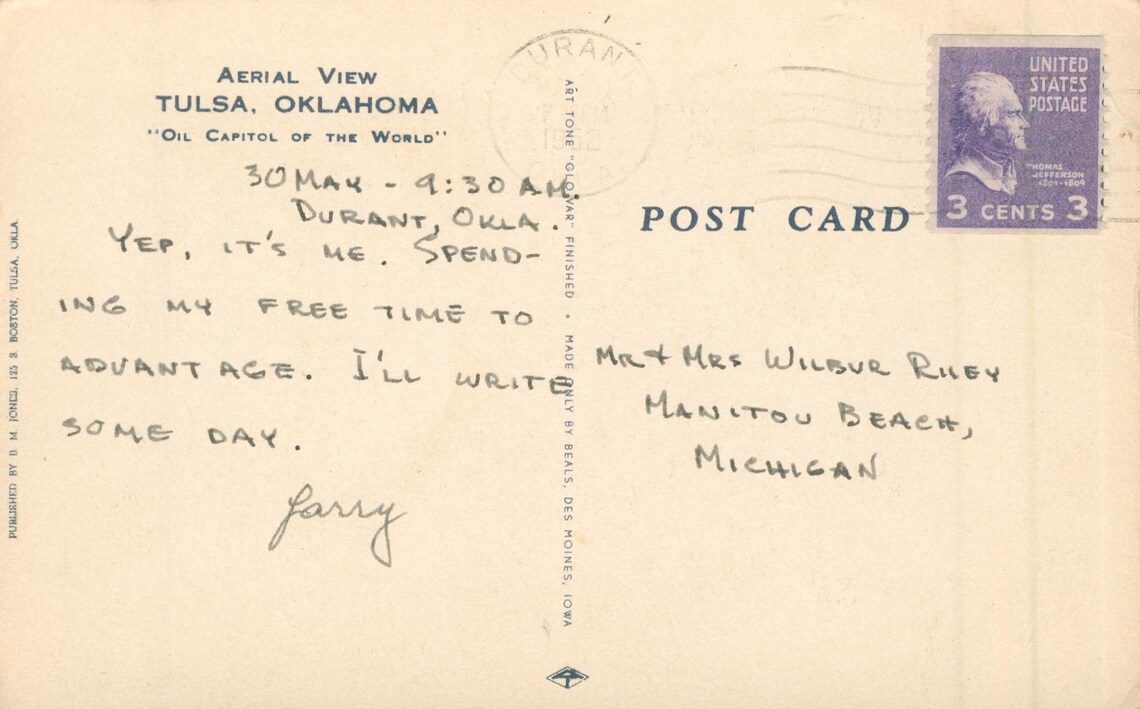 AERIAL VIEW
TULSA, OKLAHOMA
"OIL CAPITOL OF THE WORLD"
30 MAY - 9:30 AM.
DURANT, OKLA.
YEP, IT'S ME. SPEND-
ING MY FREE TIME TO
ADVANTAGE. I'LL WRITE
SOME DAY.
Larry
PUBLISHED BY B. M. JONES, 125 S. BOSTON, TULSA, OKLA.
ART TONE "GLO-VAR" FINISHED • MADE ONLY BY BEALS, DES MOINES, IOWA
DURAN
1952
UNITED
STATES
POSTAGE
THOMAS
JEFFERSON
1801-1809
3 CENTS 3
POST CARD
MR & MRS WILBUR RILEY
MANITOU BEACH,
MICHIGAN